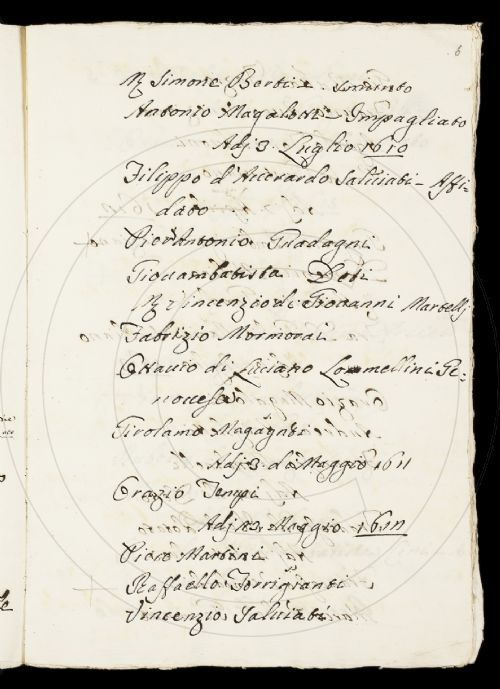 6
Simone Berti e Smunto
Antonio Magalotti Impagliato
Adj 3. Luglio 1610
Filippo d'Averardo Salviati - Affi-
dato
Pier Antonio Guadagni
Giovambatista Deti
Vincenzio di Giovanni Martellj
Fabrizio Mormorai
Ottavio di Luciano Lommellini Ge-
novese
Girolamo
Adj 3. di Maggio 1611
Orazio Tempi
Maggio
Piero Martini
Raffaello Torrigianti
Vincenzio Salviati